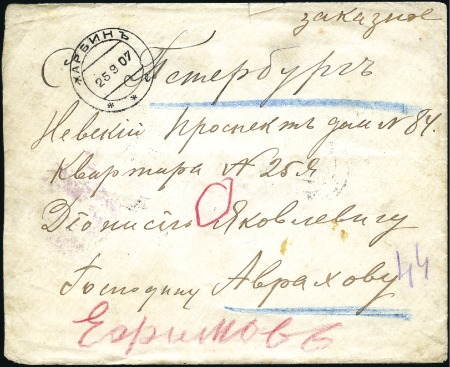 заказное
ХАРБИНЪ
25 9 07
С Петербургъ
Невскій Проспектъ домъ № 84.
Квартира № 25я
Діонисію Яковлевичу
Господину Аврахову
44
Ефимовъ